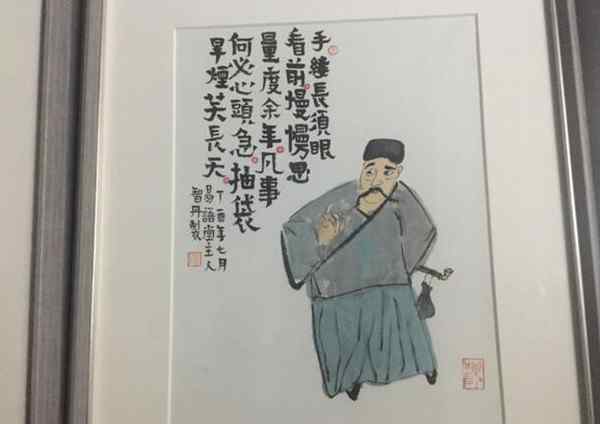 手縷長須眼
看前慢慢思
量度余年凡事
何必心頭急抽袋
旱煙笑長天
丁酉年七月
易語堂主人
智丹製